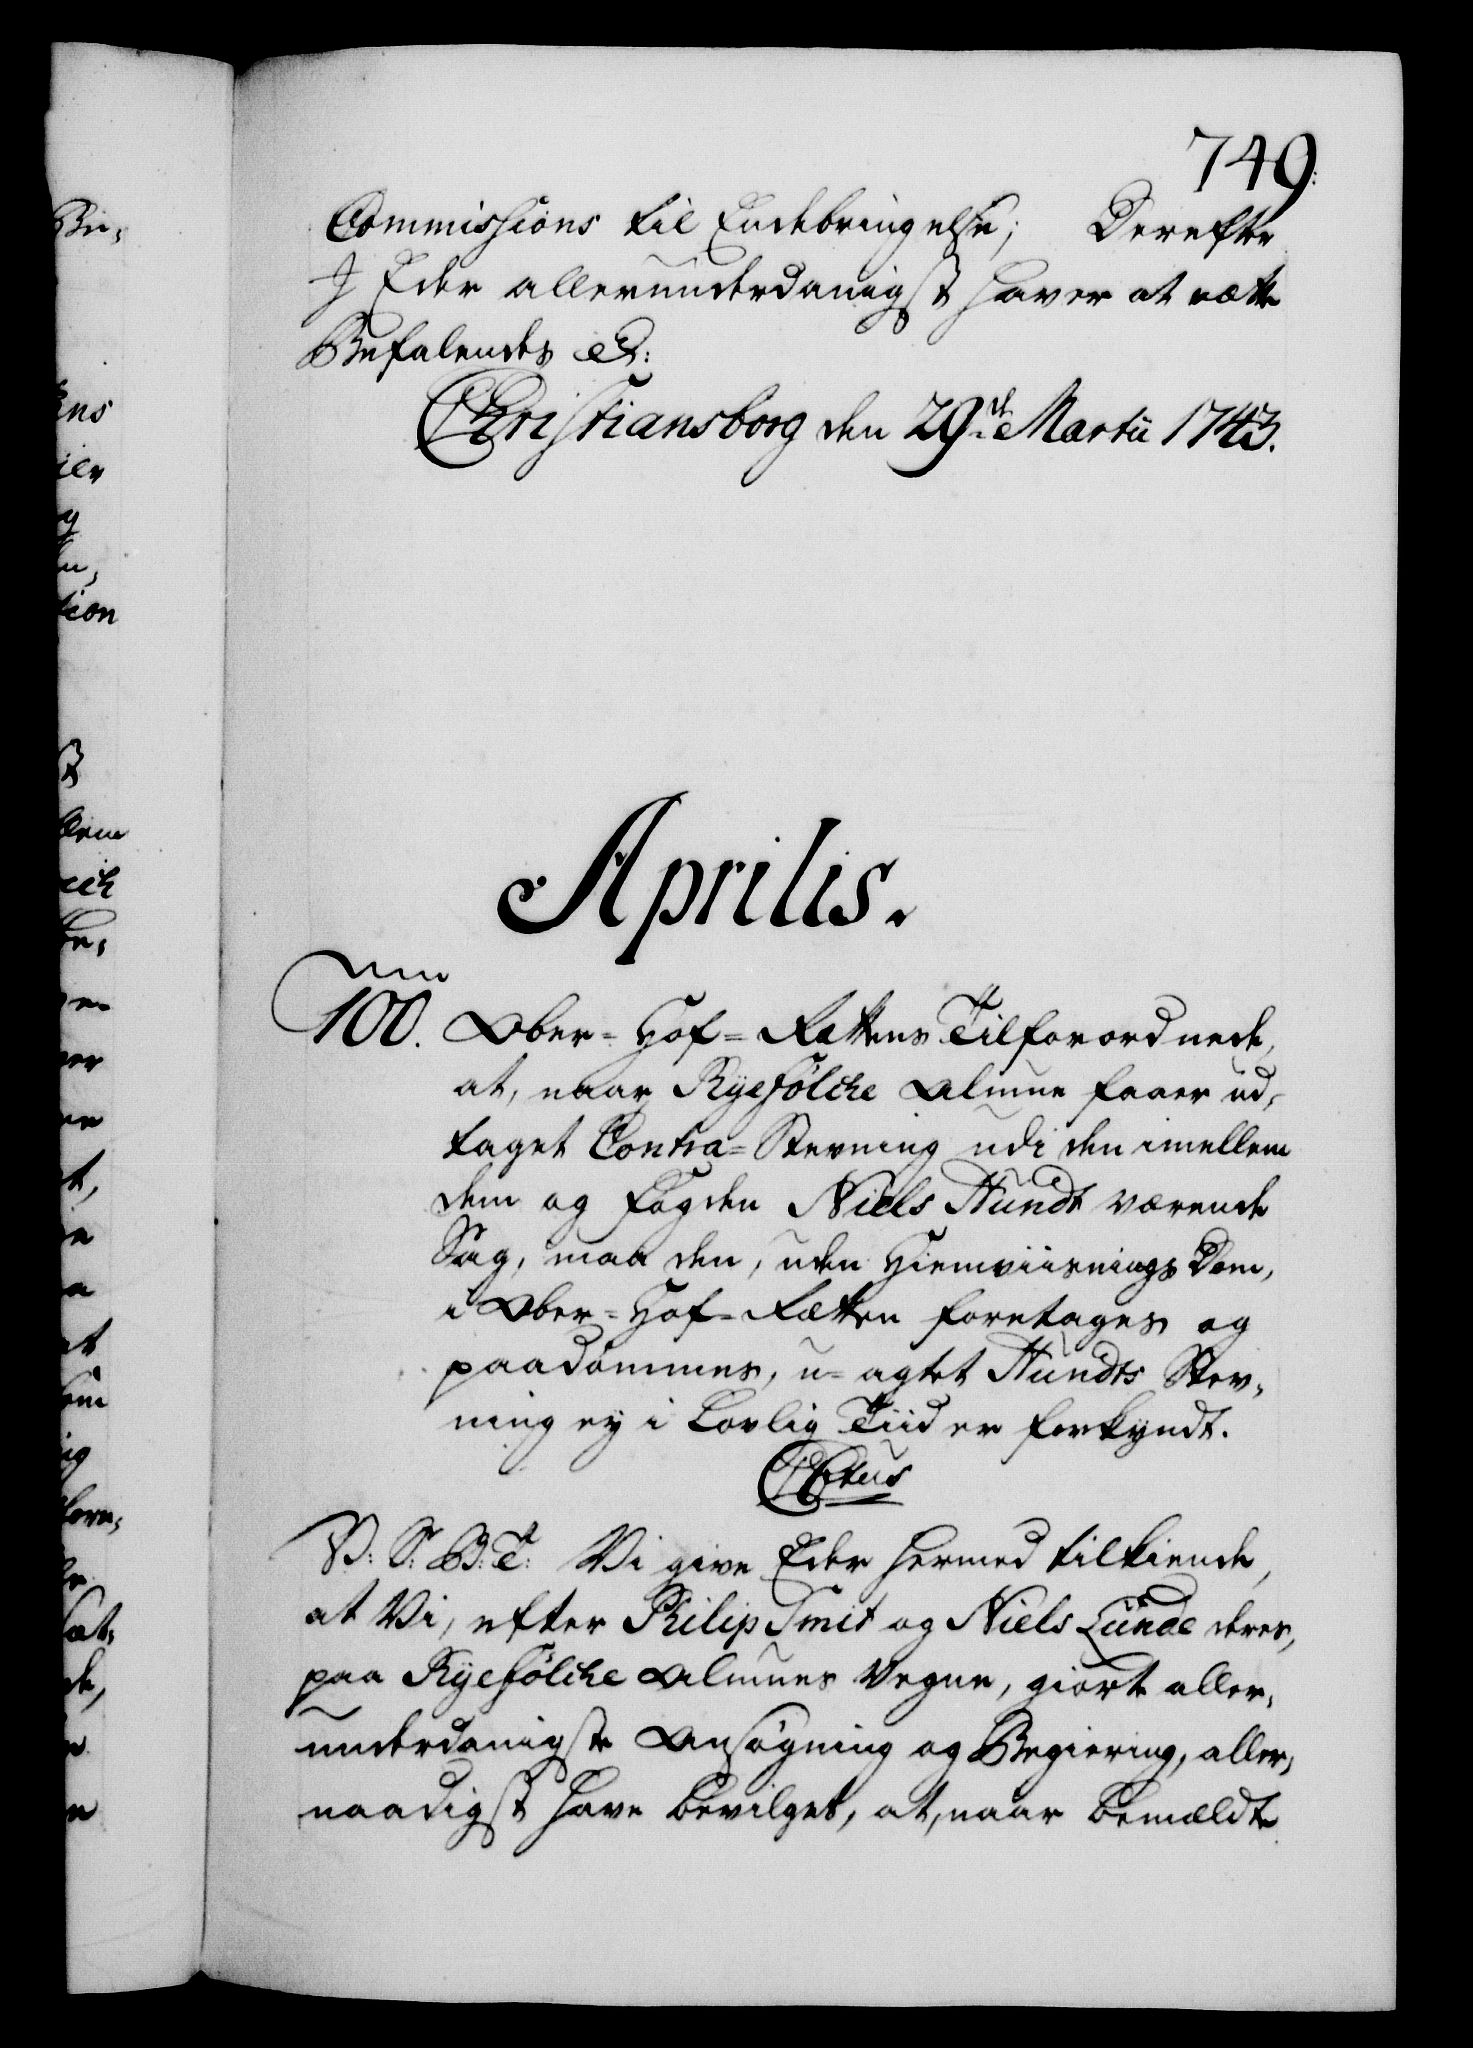 749.
Commissions til Endebringelse; Derefter
I Eder allerunderdanigst haver at rætte
Befalendes etc:
Christiansborg den 29de Martii 1743.
Aprilis.
100. Ober-Hof-Rettens Tilforordnede,
at, naar Ryefölche Almue faaer üd-
taget Contra-Stevning udi den imellem
dem og Fogden Niels Hundt værende
Sag, maa den, uden Hiemviisnings Dom,
i Ober-Hof-Retten foretages og
paadömmes, u-agtet Hundts Stev-
ning ey i Lovlig Tiid er forkyndt.
CVItus
V: S: B: T: Vi give Eder hermed tilkiende,
at Vi, efter Philip Smit og Niels Lünde deres,
paa Ryefölche Almues Vegne, giorte aller-
underdanigste Ansögning og Begiering, aller-
naadigst have bevilget, at, naar bemældte
Bu-
ens
iler
g
n,
tion
dem
ich
e-
er
t,
e
a
at
em
ig
at-
de,